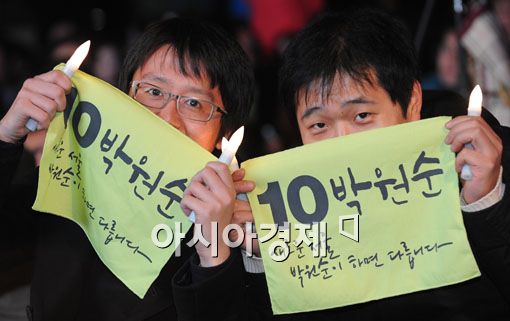 10 박원순
박원순이 하면 다릅니다
아시아경제
10 박원순
박원순이 하면 다릅니다